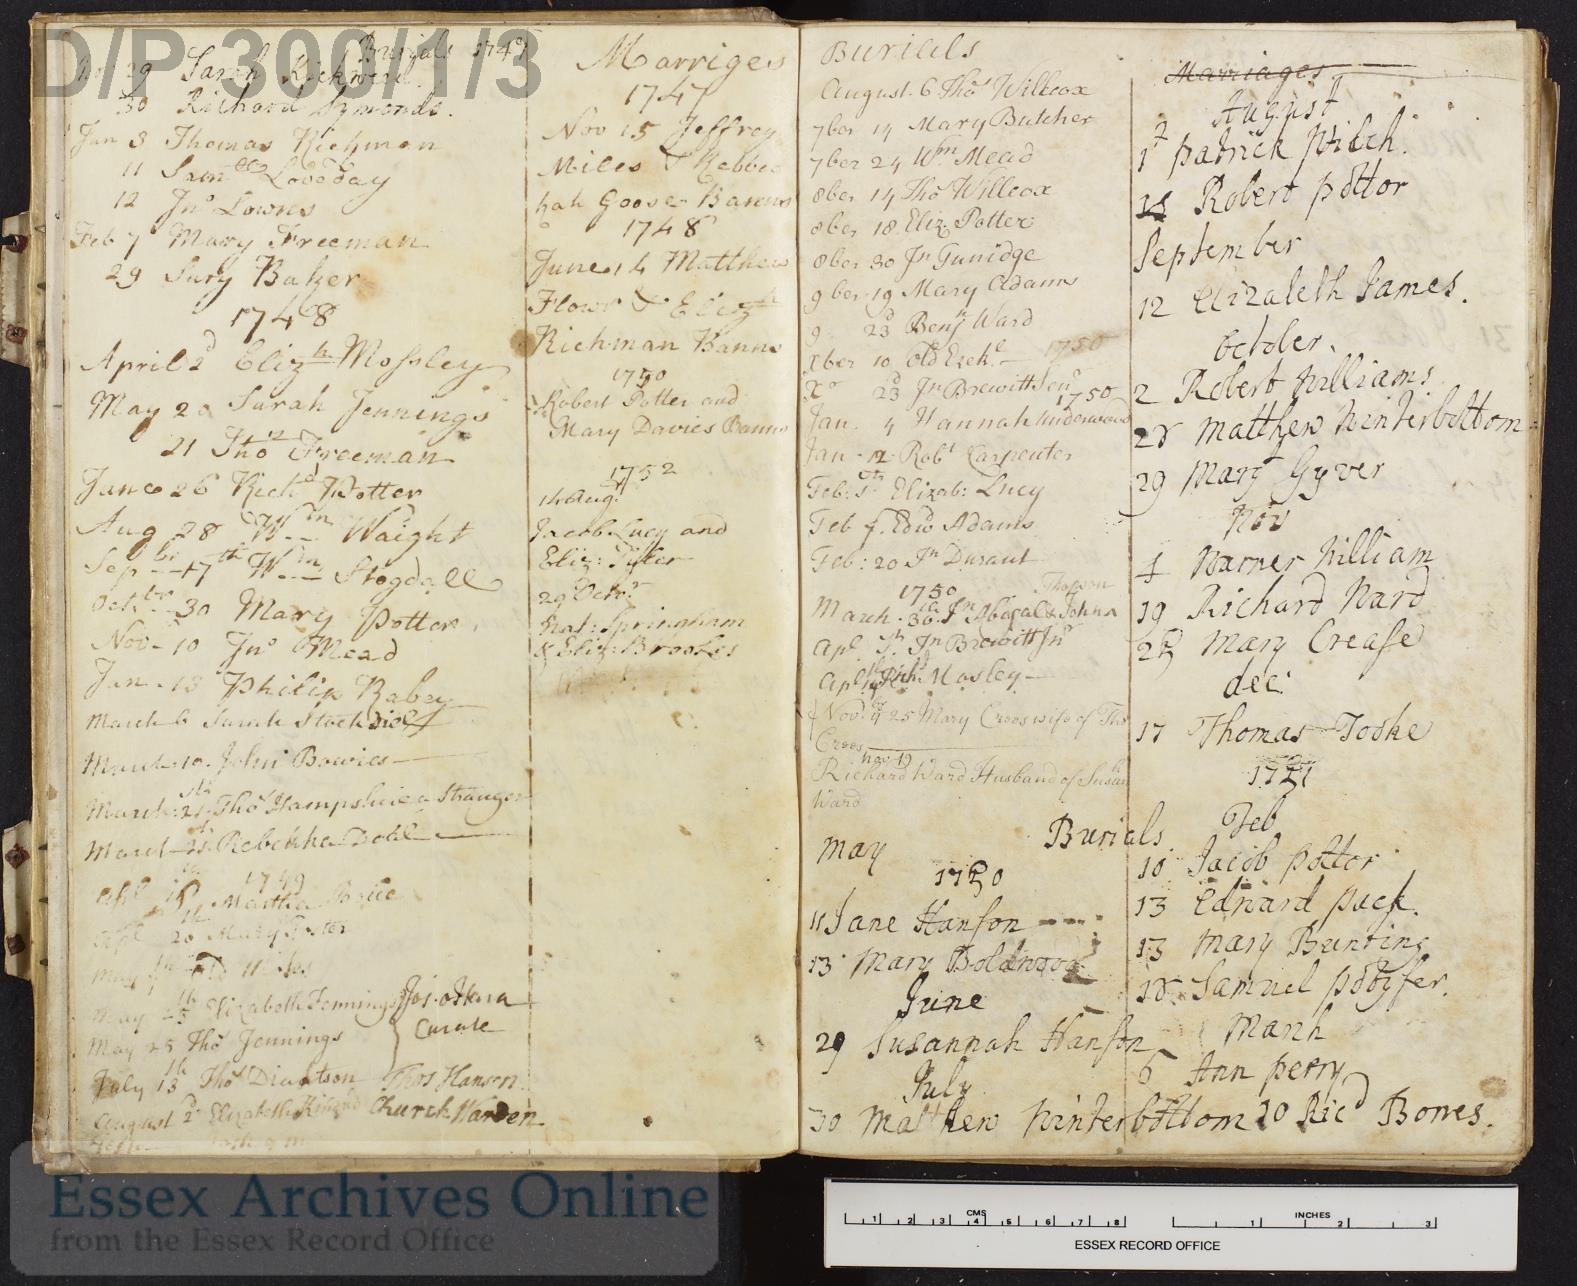 D/P 300/1/3
Burials 1747
29 Sarah
30 Richard Symonds.
Jan 3 Thomas Richman
11 Saml Loveday
12 Jno Lowns
Feb 7 Mary Freeman
29 Sury Baker
1748
April 2d Elizth Mossley
May 20 Sarah Jennings
21 Tho Freeman
June 26 Richd Potter
Aug 28 Wm Waight
Sepbr 17th Wm Stogdall
Octbr 30 Mary Potter
Nov 10 Jno Mead
Jan. 13 Philip Rabey
March 6 Sarah Stock
March 10. John Bowies
March 21st Tho Hampshire a Stranger
March 25. Rebekha Dohl
1749
Apl Martha
Apl 20 Mary
May
May 25 Elizabeth Jennings Jos.
May 25 Tho Jennings Curate
July 13th Tho Thos Hanson
August 2d Elizabeth Church Warden
Marriges
1747
Nov 15 Jeffrey
Miles & Rebbec
kah Goose Banns
1748
June 14 Matthew
Flowr & Elizth
Richman Banns
1750
Robert Potter and
Mary Davies Banns
1752
14 Augt
Jacob Lucy and
Eliz: Tyler
29 Octr
Nat: Springham
& Eliz: Brookes
Burials
August. 6 Tho Willcox
7ber 14 Mary Butcher
7ber 24 Wm Mead
8ber 14 Tho Willcox
8ber 18 Eliz. Potter
8ber 30 Jn Gunidge
9ber 19 Mary Adams
9 23d Benj Ward
Xber 10 Old Ezekl 1750
Xo 23d Jn Brewitt Senr
1750
Jan. 4 Hannah Underwood
Jan. 12 Robt Carpenter
Feb: Elizab: Lucy
Feb Edwd Adams
Feb: 20 Jn Durant
1750
March
Apl Jn Brewitt Jnr
Apl Richd Mosley
Nov. 25 Mary Croos wife of Tho
Croos
Nov 19
Richard Ward Husband of Susan
Ward
Burials
May
1750
11 Jane Hanson
13 Mary Boldwood
June
29 Susannah Hanson
July
30 Matthew Winterbottom
Marriages
August
1 patrick
Robert pottor
September
12 Elizabeth James.
October.
2 Robert williams
28 Matthew Winterbottom
29 Mary Gyver
Nov
4 Warner William
19 Richard Ward
25 Mary Crease
dec:
17 Thomas Toske
1751
Feb
10 Jacob pottor
13 Edward puck.
13 Mary Bunting
18 Samuel
March
6 Ann perry
20 Ricd Bones.
Essex Archives Online
from the Essex Record Office
CMS
1 2 3 4 5 6 7 8
INCHES
1 2 3
ESSEX RECORD OFFICE